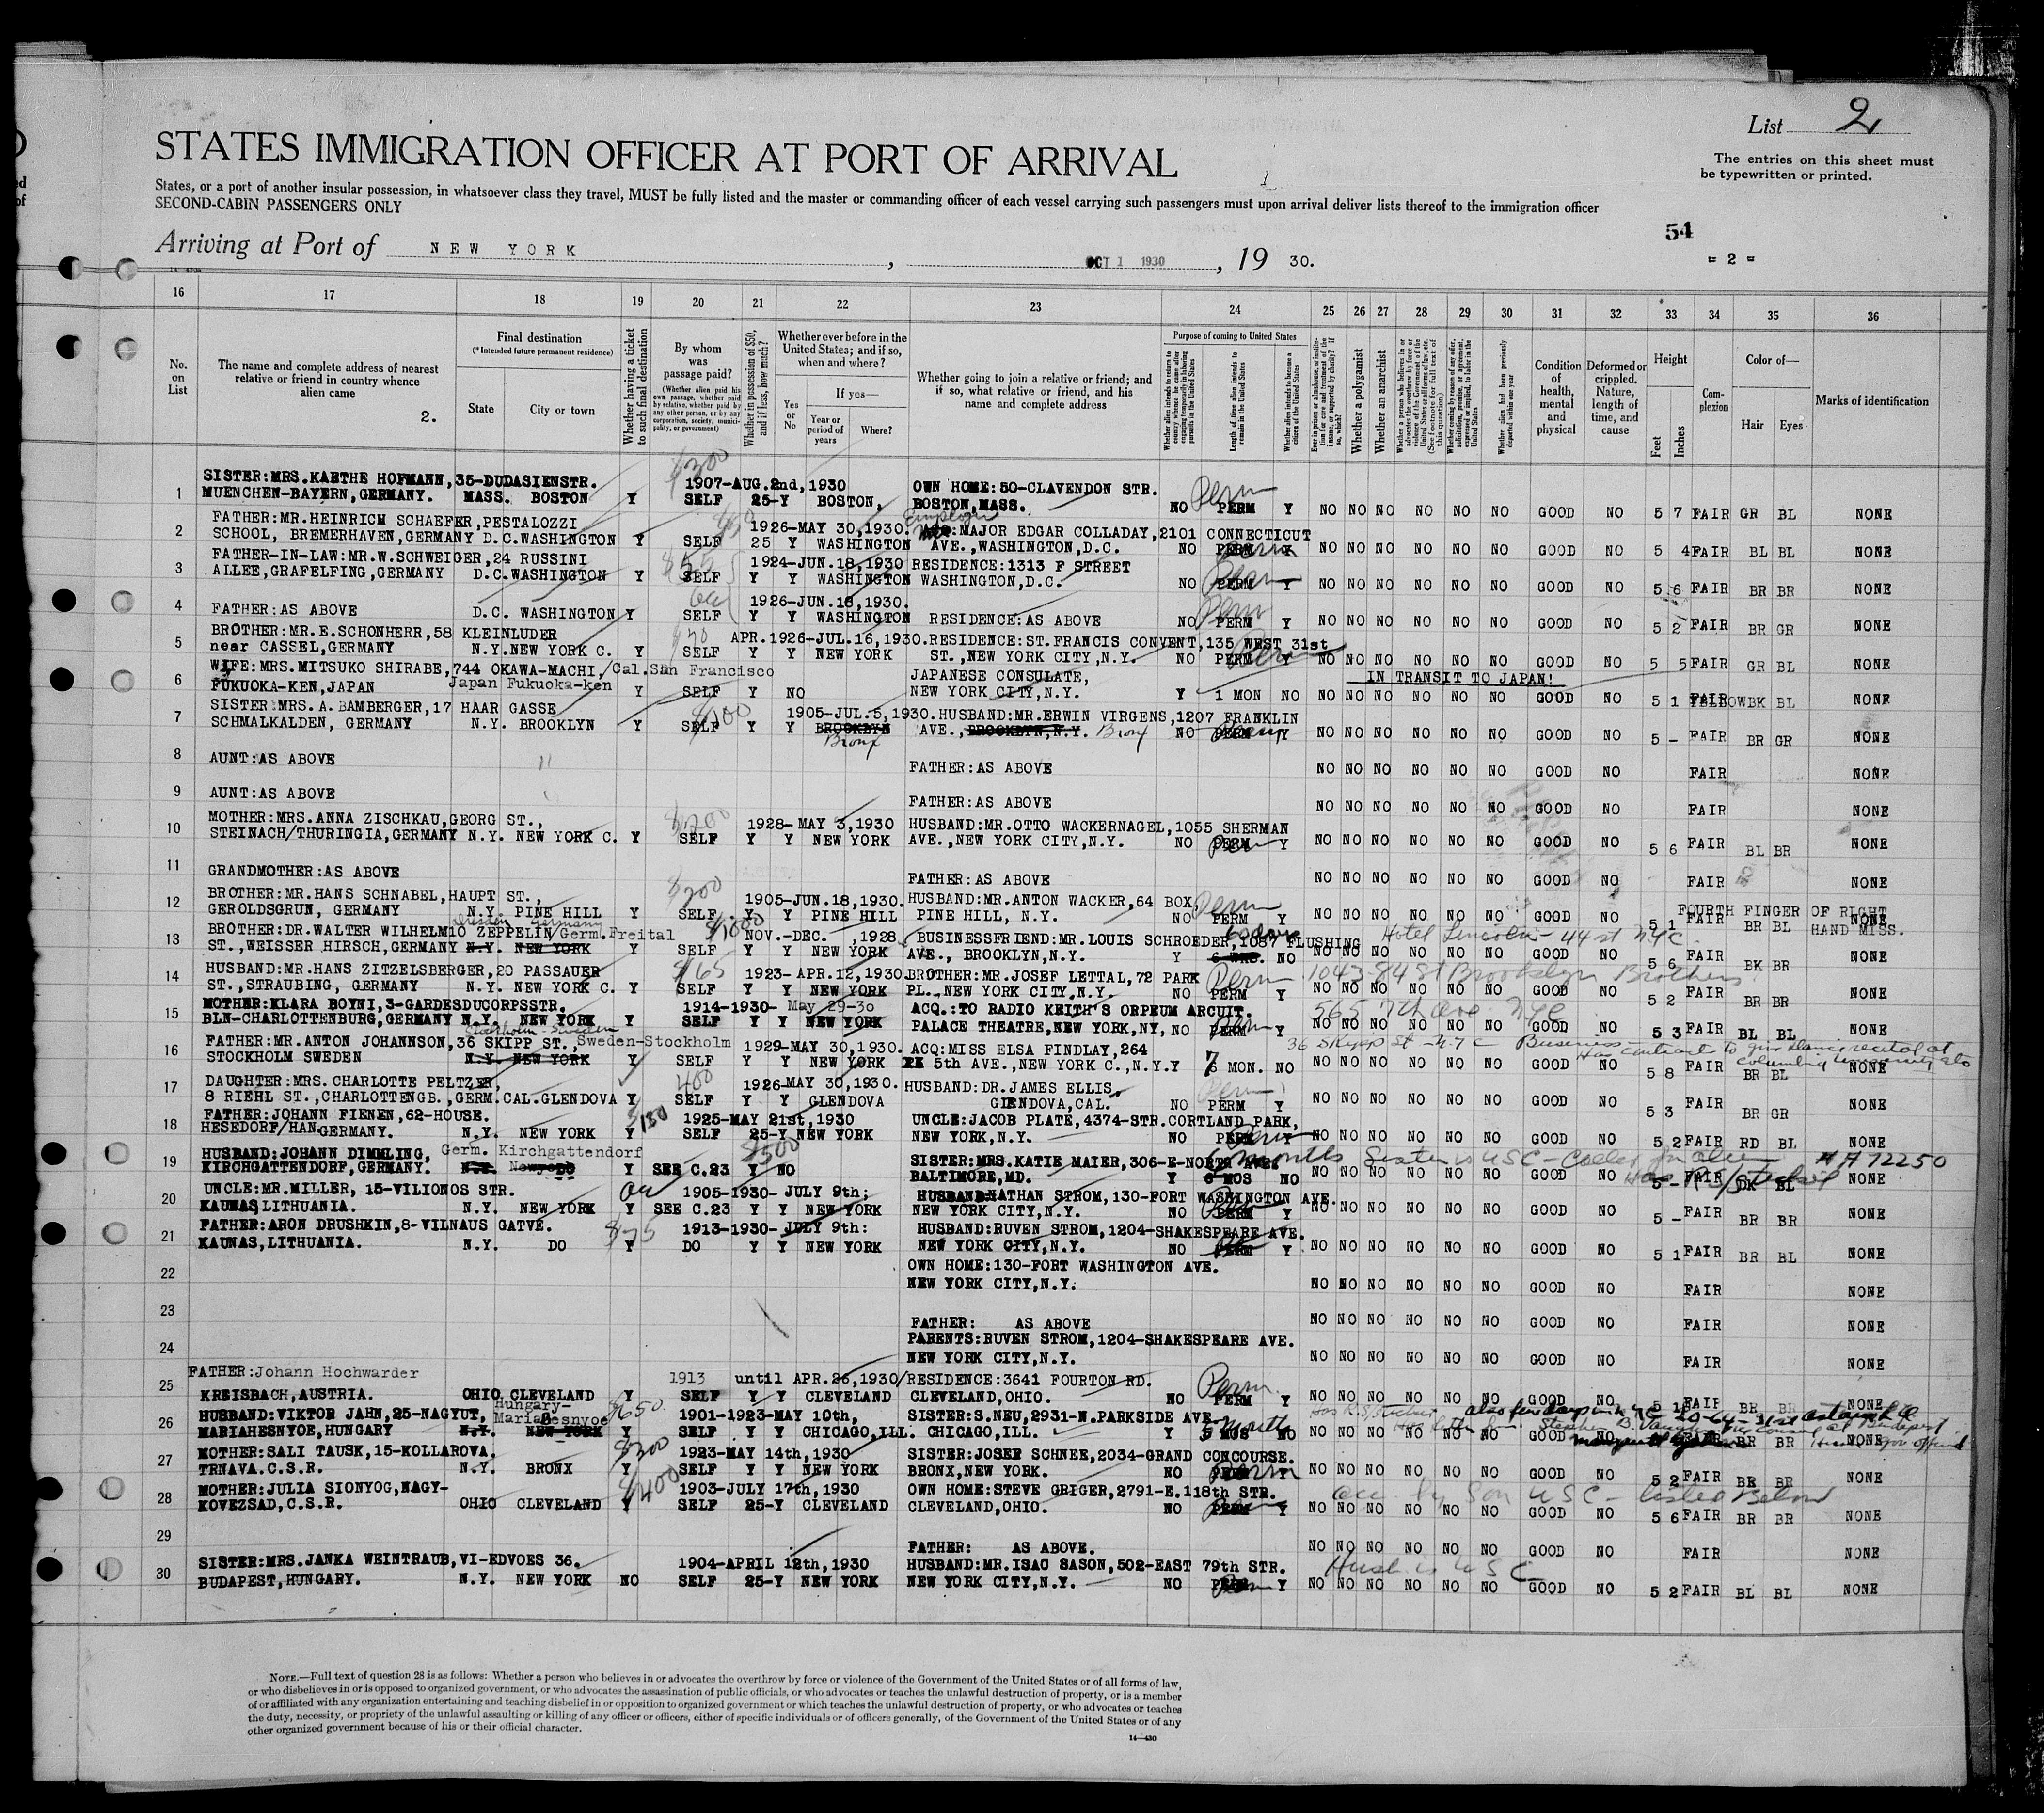 List 2
STATES IMMIGRATION OFFICER AT PORT OF ARRIVAL
The entries on this sheet must
be typewritten or printed.
States, or a port of another insular possession, in whatsoever class they travel, MUST be fully listed and the master or commanding officer of each vessel carrying such passengers must upon arrival deliver lists thereof to the immigration officer
SECOND-CABIN PASSENGERS ONLY
54
Arriving at Port of NEW YORK, OCT 1 1930, 19 30.
= 2 =
16 17 18 19 20 21 22 23 24 25 26 27 28 29 30 31 32 33 34 35 36
No. on List
The name and complete address of nearest relative or friend in country whence alien came
2.
Final destination
(*Intended future permanent residence)
State City or town
Whether having a ticket to such final destination
By whom was passage paid?
(Whether alien paid his own passage, whether paid by relative, whether paid by any other person, or by any corporation, society, municipality, or government)
Whether in possession of $50, and if less, how much?
Whether ever before in the United States; and if so, when and where?
Yes or No
If yes—
Year or period of years Where?
Whether going to join a relative or friend; and if so, what relative or friend, and his name and complete address
Purpose of coming to United States
Length of time alien intends to remain in the United States
Whether alien intends to become a citizen of the United States
Whether a polygamist
Whether an anarchist
Condition of health, mental and physical
Deformed or crippled. Nature, length of time, and cause
Height
Feet Inches
Complexion
Color of—
Hair Eyes
Marks of identification
SISTER:MRS.KAETHE HOFMANN,35-DUDASIENSTR. $300 1907-AUG.2nd,1930 OWN HOME:50-CLAVENDON STR. Perm
1 MUENCHEN-BAYERN,GERMANY. MASS. BOSTON Y SELF 25-Y BOSTON, BOSTON,MASS. NO PERM Y NO NO NO NO NO NO GOOD NO 5 7 FAIR GR BL NONE
FATHER:MR.HEINRICH SCHAEFER,PESTALOZZI 1926-MAY 30,1930. Employer :MAJOR EDGAR COLLADAY,2101 CONNECTICUT
2 SCHOOL, BREMERHAVEN,GERMANY D.C.WASHINGTON Y SELF 25 Y WASHINGTON AVE.,WASHINGTON,D.C. NO PERM Y NO NO NO NO NO NO GOOD NO 5 4 FAIR BL BL NONE
FATHER-IN-LAW:MR.W.SCHWEIGER,24 RUSSINI 1924-JUN.18,1930 RESIDENCE:1313 F STREET
3 ALLEE,GRAFELFING,GERMANY D.C.WASHINGTON Y SELF Y Y WASHINGTON WASHINGTON,D.C. NO PERM Y NO NO NO NO NO NO GOOD NO 5 6 FAIR BR BR NONE
1926-JUN.18,1930. Perm
4 FATHER:AS ABOVE D.C. WASHINGTON Y SELF Y Y WASHINGTON RESIDENCE:AS ABOVE NO PERM Y NO NO NO NO NO NO GOOD NO 5 2 FAIR BR GR NONE
BROTHER:MR.E.SCHONHERR,58 KLEINLUDER $70 APR.1926-JUL.16,1930.RESIDENCE:ST.FRANCIS CONVENT,135 WEST 31st
5 near CASSEL,GERMANY N.Y.NEW YORK C. Y SELF Y Y NEW YORK ST.,NEW YORK CITY,N.Y. NO PERM Y NO NO NO NO NO NO GOOD NO 5 5 FAIR GR BL NONE
WIFE:MRS.MITSUKO SHIRABE,744 OKAWA-MACHI,/Cal.San Francisco JAPANESE CONSULATE, IN TRANSIT TO JAPAN!
6 FUKUOKA-KEN,JAPAN Japan Fukuoka-ken Y SELF Y NO NEW YORK CITY,N.Y. Y 1 MON NO NO NO NO NO NO NO GOOD NO 5 1 BK BL NONE
SISTER:MRS.A.BAMBERGER,17 HAAR GASSE $100 1905-JUL.5,1930.HUSBAND:MR.ERWIN VIRGENS,1207 FRANKLIN
7 SCHMALKALDEN, GERMANY N.Y. BROOKLYN Y SELF Y Y BROOKLYN AVE.,BROOKLYN,N.Y. Bronx NO PERM Y NO NO NO NO NO NO GOOD NO 5 - FAIR BR GR NONE
Bronx
8 AUNT:AS ABOVE " FATHER:AS ABOVE NO NO NO NO NO NO GOOD NO FAIR NONE
9 AUNT:AS ABOVE FATHER:AS ABOVE NO NO NO NO NO NO GOOD NO FAIR NONE
MOTHER:MRS.ANNA ZISCHKAU,GEORG ST., $200 1928-MAY 3,1930 HUSBAND:MR.OTTO WACKERNAGEL,1055 SHERMAN
10 STEINACH/THURINGIA,GERMANY N.Y. NEW YORK C. Y SELF Y Y NEW YORK AVE.,NEW YORK CITY,N.Y. NO PERM Y NO NO NO NO NO NO GOOD NO 5 6 FAIR BL BR NONE
11 GRANDMOTHER:AS ABOVE FATHER:AS ABOVE NO NO NO NO NO NO GOOD NO FAIR NONE
BROTHER:MR.HANS SCHNABEL,HAUPT ST., $200 1905-JUN.18,1930. HUSBAND:MR.ANTON WACKER,64 BOX, Perm
12 GEROLDSGRUN, GERMANY N.Y. PINE HILL Y SELF Y Y PINE HILL PINE HILL, N.Y. NO PERM Y NO NO NO NO NO NO GOOD NO 5 1 FAIR BR BL NONE FOURTH FINGER OF RIGHT HAND MISS.
Dresden Germany
BROTHER:DR.WALTER WILHELM10 ZEPPELIN/Germ.Freital $100 NOV.-DEC. ,1928. BUSINESSFRIEND:MR.LOUIS SCHROEDER,1087 FLUSHING 60 days Hotel Lincoln - 44 st NYC
13 ST.,WEISSER HIRSCH,GERMANY N.Y. NEW YORK Y SELF Y Y NEW YORK AVE., BROOKLYN,N.Y. Y 6 WKS. NO NO NO NO NO NO NO GOOD NO 5 6 FAIR BK BR NONE
HUSBAND:MR.HANS ZITZELSBERGER,20 PASSAUER $165 1923-APR.12,1930.BROTHER:MR.JOSEF LETTAL,72 PARK Perm 1043-84 St Brooklyn Brothers
14 ST.,STRAUBING, GERMANY N.Y. NEW YORK C. Y SELF Y Y NEW YORK PL.,NEW YORK CITY,N.Y. NO PERM Y NO NO NO NO NO NO GOOD NO 5 2 FAIR BR BR NONE
MOTHER:KLARA BOYNI,3-GARDESDUCORPSSTR. 1914-1930- May 29-30 ACQ.:TO RADIO KEITH'S ORPEUM ARCUIT. 565 7th Ave NYC
15 BLN-CHARLOTTENBURG,GERMANY N.Y. NEW YORK Y SELF Y Y NEW YORK PALACE THEATRE,NEW YORK,NY, NO PERM Y NO NO NO NO NO NO GOOD NO 5 3 FAIR BL BL NONE
Stockholm-Sweden
FATHER:MR.ANTON JOHANNSON,36 SKIPP ST.,Sweden-Stockholm 1929-MAY 30,1930. ACQ:MISS ELSA FINDLAY,264 Business
16 STOCKHOLM SWEDEN N.Y. NEW YORK Y SELF Y Y NEW YORK 5th AVE.,NEW YORK C.,N.Y. Y 7 6 MON. NO NO NO NO NO NO NO GOOD NO 5 8 FAIR BR BL NONE
Has contract to give dance recital at Columbia University etc
DAUGHTER:MRS.CHARLOTTE PELTZER, 400 1926-MAY 30,1930. HUSBAND:DR.JAMES ELLIS, Perm
17 8 RIEHL ST.,CHARLOTTENGB.,GERM.CAL.GLENDOVA Y SELF Y Y GLENDOVA GLENDOVA,CAL. NO PERM Y NO NO NO NO NO NO GOOD NO 5 3 FAIR BR GR NONE
FATHER:JOHANN FIENEN,62-HOUSE. $130 1925-MAY 21st,1930 UNCLE:JACOB PLATE,4374-STR.CORTLAND PARK,
18 HESEDORF/HAN.GERMANY. N.Y. NEW YORK Y SELF 25-Y NEW YORK NEW YORK,N.Y. NO PERM Y NO NO NO NO NO NO GOOD NO 5 2 FAIR RD BL NONE
HUSBAND:JOHANN DIMMLING, Germ. Kirchgattendorf $500 SISTER:MRS.KATIE MAIER,306-E-NORTH AVE. 6 months Sister is USC - #A 72250
19 KIRCHGATTENDORF,GERMANY. N.Y. DO Y SEE C.23 Y NO BALTIMORE,MD. Y 6 MOS NO NO NO NO NO NO NO GOOD NO 5 - FAIR DK BL NONE
UNCLE:MR.MILLER, 15-VILIONOS STR. 1905-1930- JULY 9th; HUSBAND:NATHAN STROM,130-FORT WASHINGTON AVE.
20 KAUNAS,LITHUANIA. N.Y. NEW YORK Y SEE C.23 Y Y NEW YORK NEW YORK CITY,N.Y. NO PERM Y NO NO NO NO NO NO GOOD NO 5 - FAIR BR BR NONE
FATHER:ARON DRUSHKIN,8-VILNAUS GATVE. $75 1913-1930-JULY 9th: HUSBAND:RUVEN STROM,1204-SHAKESPEARE AVE.
21 KAUNAS,LITHUANIA. N.Y. DO Y DO Y Y NEW YORK NEW YORK CITY,N.Y. NO PERM Y NO NO NO NO NO NO GOOD NO 5 1 FAIR BR BL NONE
OWN HOME:130-FORT WASHINGTON AVE.
22 NEW YORK CITY,N.Y. NO NO NO NO NO NO GOOD NO FAIR NONE
23 FATHER: AS ABOVE NO NO NO NO NO NO GOOD NO FAIR NONE
PARENTS:RUVEN STROM,1204-SHAKESPEARE AVE.
24 NEW YORK CITY,N.Y. NO NO NO NO NO NO GOOD NO FAIR NONE
FATHER:Johann Hochwarder 1913 until APR.26,1930/RESIDENCE:3641 FOURTON RD. Perm
25 KREISBACH,AUSTRIA. OHIO CLEVELAND Y SELF Y Y CLEVELAND CLEVELAND,OHIO. NO PERM Y NO NO NO NO NO NO GOOD NO 5 1 FAIR BR BR NONE
HUSBAND:VIKTOR JAHN,25-NAGYUT, Hungary-Mariabesnyoe $650 1901-1923-MAY 10th, SISTER:S.NEU,2931-N.PARKSIDE AVE. months
26 MARIAHESNYOE,HUNGARY N.Y. NEW YORK Y SELF Y Y CHICAGO,ILL. CHICAGO,ILL. Y MOS NO GOOD NO FAIR BR BR NONE
MOTHER:SALI TAUSK,15-KOLLAROVA. $300 1923-MAY 14th,1930 SISTER:JOSEF SCHNEE,2034-GRAND CONCOURSE.
27 TRNAVA.C.S.R. N.Y. BRONX Y SELF Y Y NEW YORK BRONX,NEW YORK. NO PERM NO NO NO NO NO NO GOOD NO 5 2 FAIR BR BR NONE
MOTHER:JULIA SIONYOG,NAGY- $400 1903-JULY 17th,1930 OWN HOME:STEVE GRIGER,2791-E.118th STR. acc. by son USC - listed Below
28 KOVEZSAD,C.S.R. OHIO CLEVELAND Y SELF 25-Y CLEVELAND CLEVELAND,OHIO. NO PERM Y NO NO NO NO NO NO GOOD NO 5 6 FAIR BR BR NONE
29 FATHER: AS ABOVE. NO NO NO NO NO NO GOOD NO FAIR NONE
SISTER:MRS.JANKA WEINTRAUB,VI-EDVOES 36. 1904-APRIL 12th,1930 HUSBAND:MR.ISAC SASON,502-EAST 79th STR. Husb is USC
30 BUDAPEST,HUNGARY. N.Y. NEW YORK NO SELF 25-Y NEW YORK NEW YORK CITY,N.Y. NO PERM Y NO NO NO NO NO NO GOOD NO 5 2 FAIR BL BL NONE
NOTE.—Full text of question 28 is as follows: Whether a person who believes in or advocates the overthrow by force or violence of the Government of the United States or of all forms of law,
or who disbelieves in or is opposed to organized government, or who advocates the assassination of public officials, or who advocates or teaches the unlawful destruction of property, or is a member
of or affiliated with any organization entertaining and teaching disbelief in or opposition to organized government or which teaches the unlawful destruction of property, or who advocates or teaches
the duty, necessity, or propriety of the unlawful assaulting or killing of any officer or officers, either of specific individuals or of officers generally, of the Government of the United States or of any
other organized government because of his or their official character.
14—430